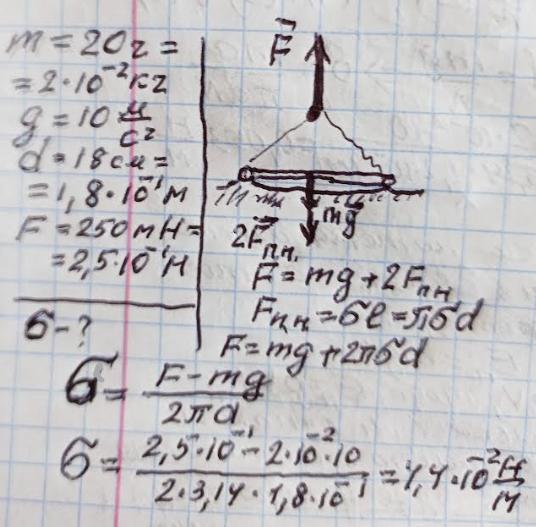 m = 20г =
= 2·10⁻² кг
g = 10 м/с²
d = 18 см =
= 1,8·10⁻¹ м
F = 250 mН =
= 2,5·10⁻¹ Н
σ - ?
F⃗
mg⃗
2F⃗п.н.
F⃗ = mg + 2Fпн
Fп.н. = σℓ = πσd
F = mg + 2πσd
σ = (F - mg) / (2πd)
σ = (2,5·10⁻¹ - 2·10⁻²·10) / (2·3,14·1,8·10⁻¹) = 4,4·10⁻² Н/м